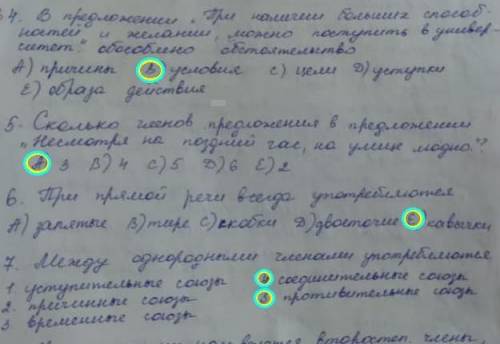 34. В предложении „При наличии больших способ-
ностей и желании, можно поступить в универ-
ситет" обособлено обстоятельство
А) причины В) условия С) цели D) уступки
Е) образа действия
5. Сколько членов предложения в предложении
„Несмотря на поздний час, на улице людно."?
А) 3 В) 4 С) 5 D) 6 Е) 2
6. При прямой речи всегда употребляются
А) запятые В) тире С) скобки D) двоеточие Е) кавычки
7. Между однородными членами употребляются
1. уступительные союзы соединительные союзы
2. причинные союзы противительные союзы
3 временные союзы
второстеп. члены,